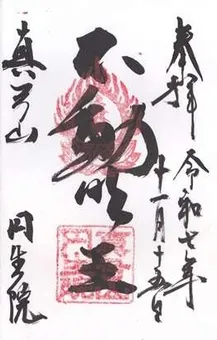 奉拝
令和七年
十一月十五日
不動明王
真言山
円生院